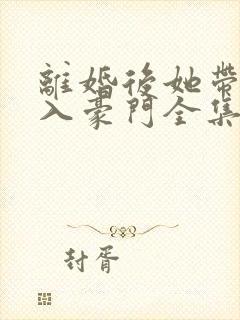 離婚後她帶
入豪門全集
封胥